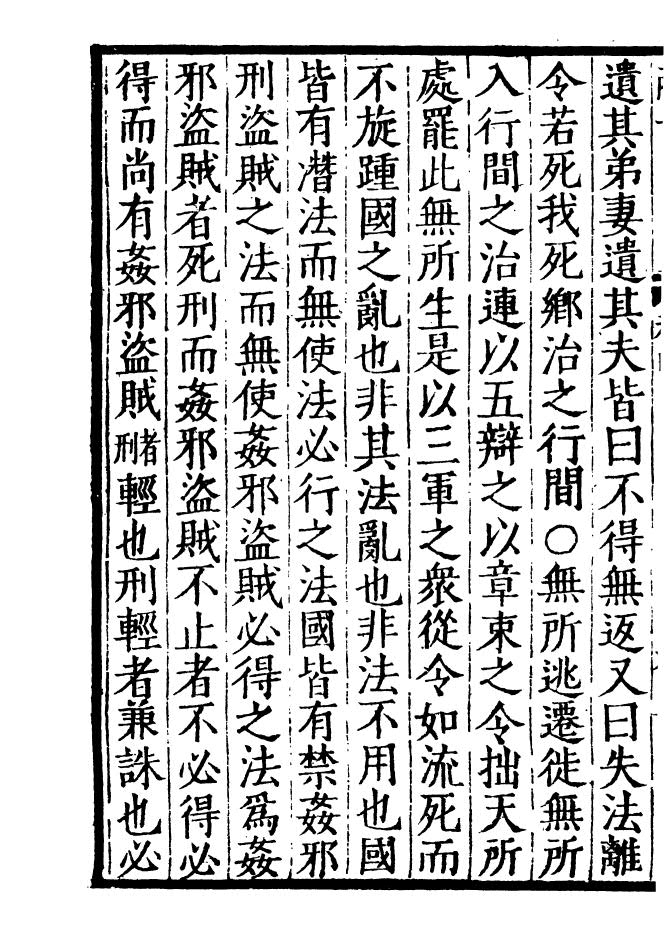 遺其弟妻遺其夫皆曰不得無返又曰失法離
令若死我死鄉治之行間○無所逃遷徙無所
入行間之治連以五辯之以章束之令拙天所
處罷此無所生是以三軍之衆從令如流死而
不旋踵國之亂也非其法亂也非法不用也國
皆有濳法而無使法必行之法國皆有禁姦邪
刑盜賊之法而無使姦邪盜賊必得之法爲姦
邪盜賊者死刑而姦邪盜賊不止者不必得必
得而尚有姦邪盜賊者刑輕也刑輕者兼誅也必